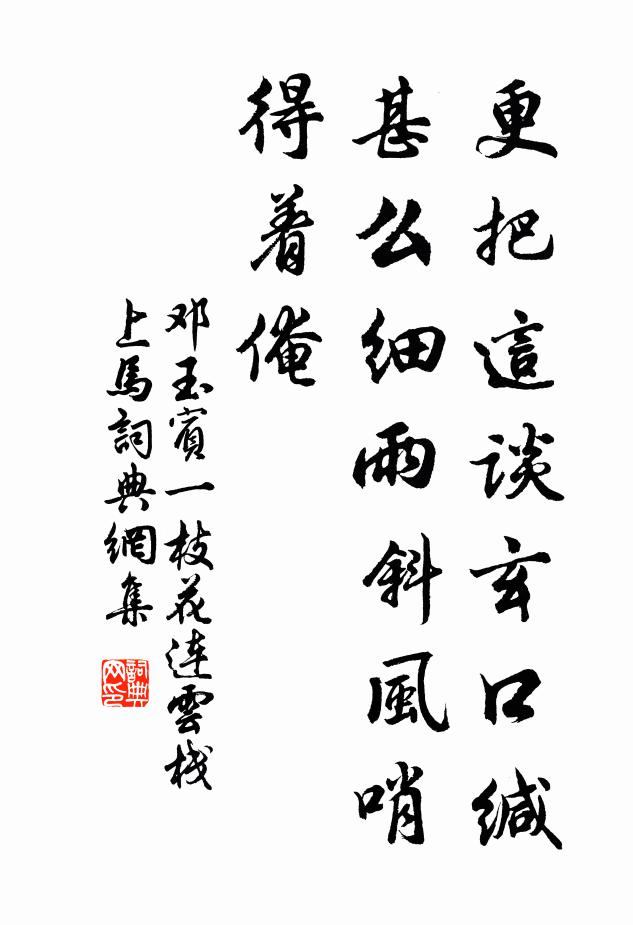 更把這谈玄口缄
甚么细雨斜風哨
得着俺
邓玉賓一枝花连雲栈
上馬詞典網集
詞典網印